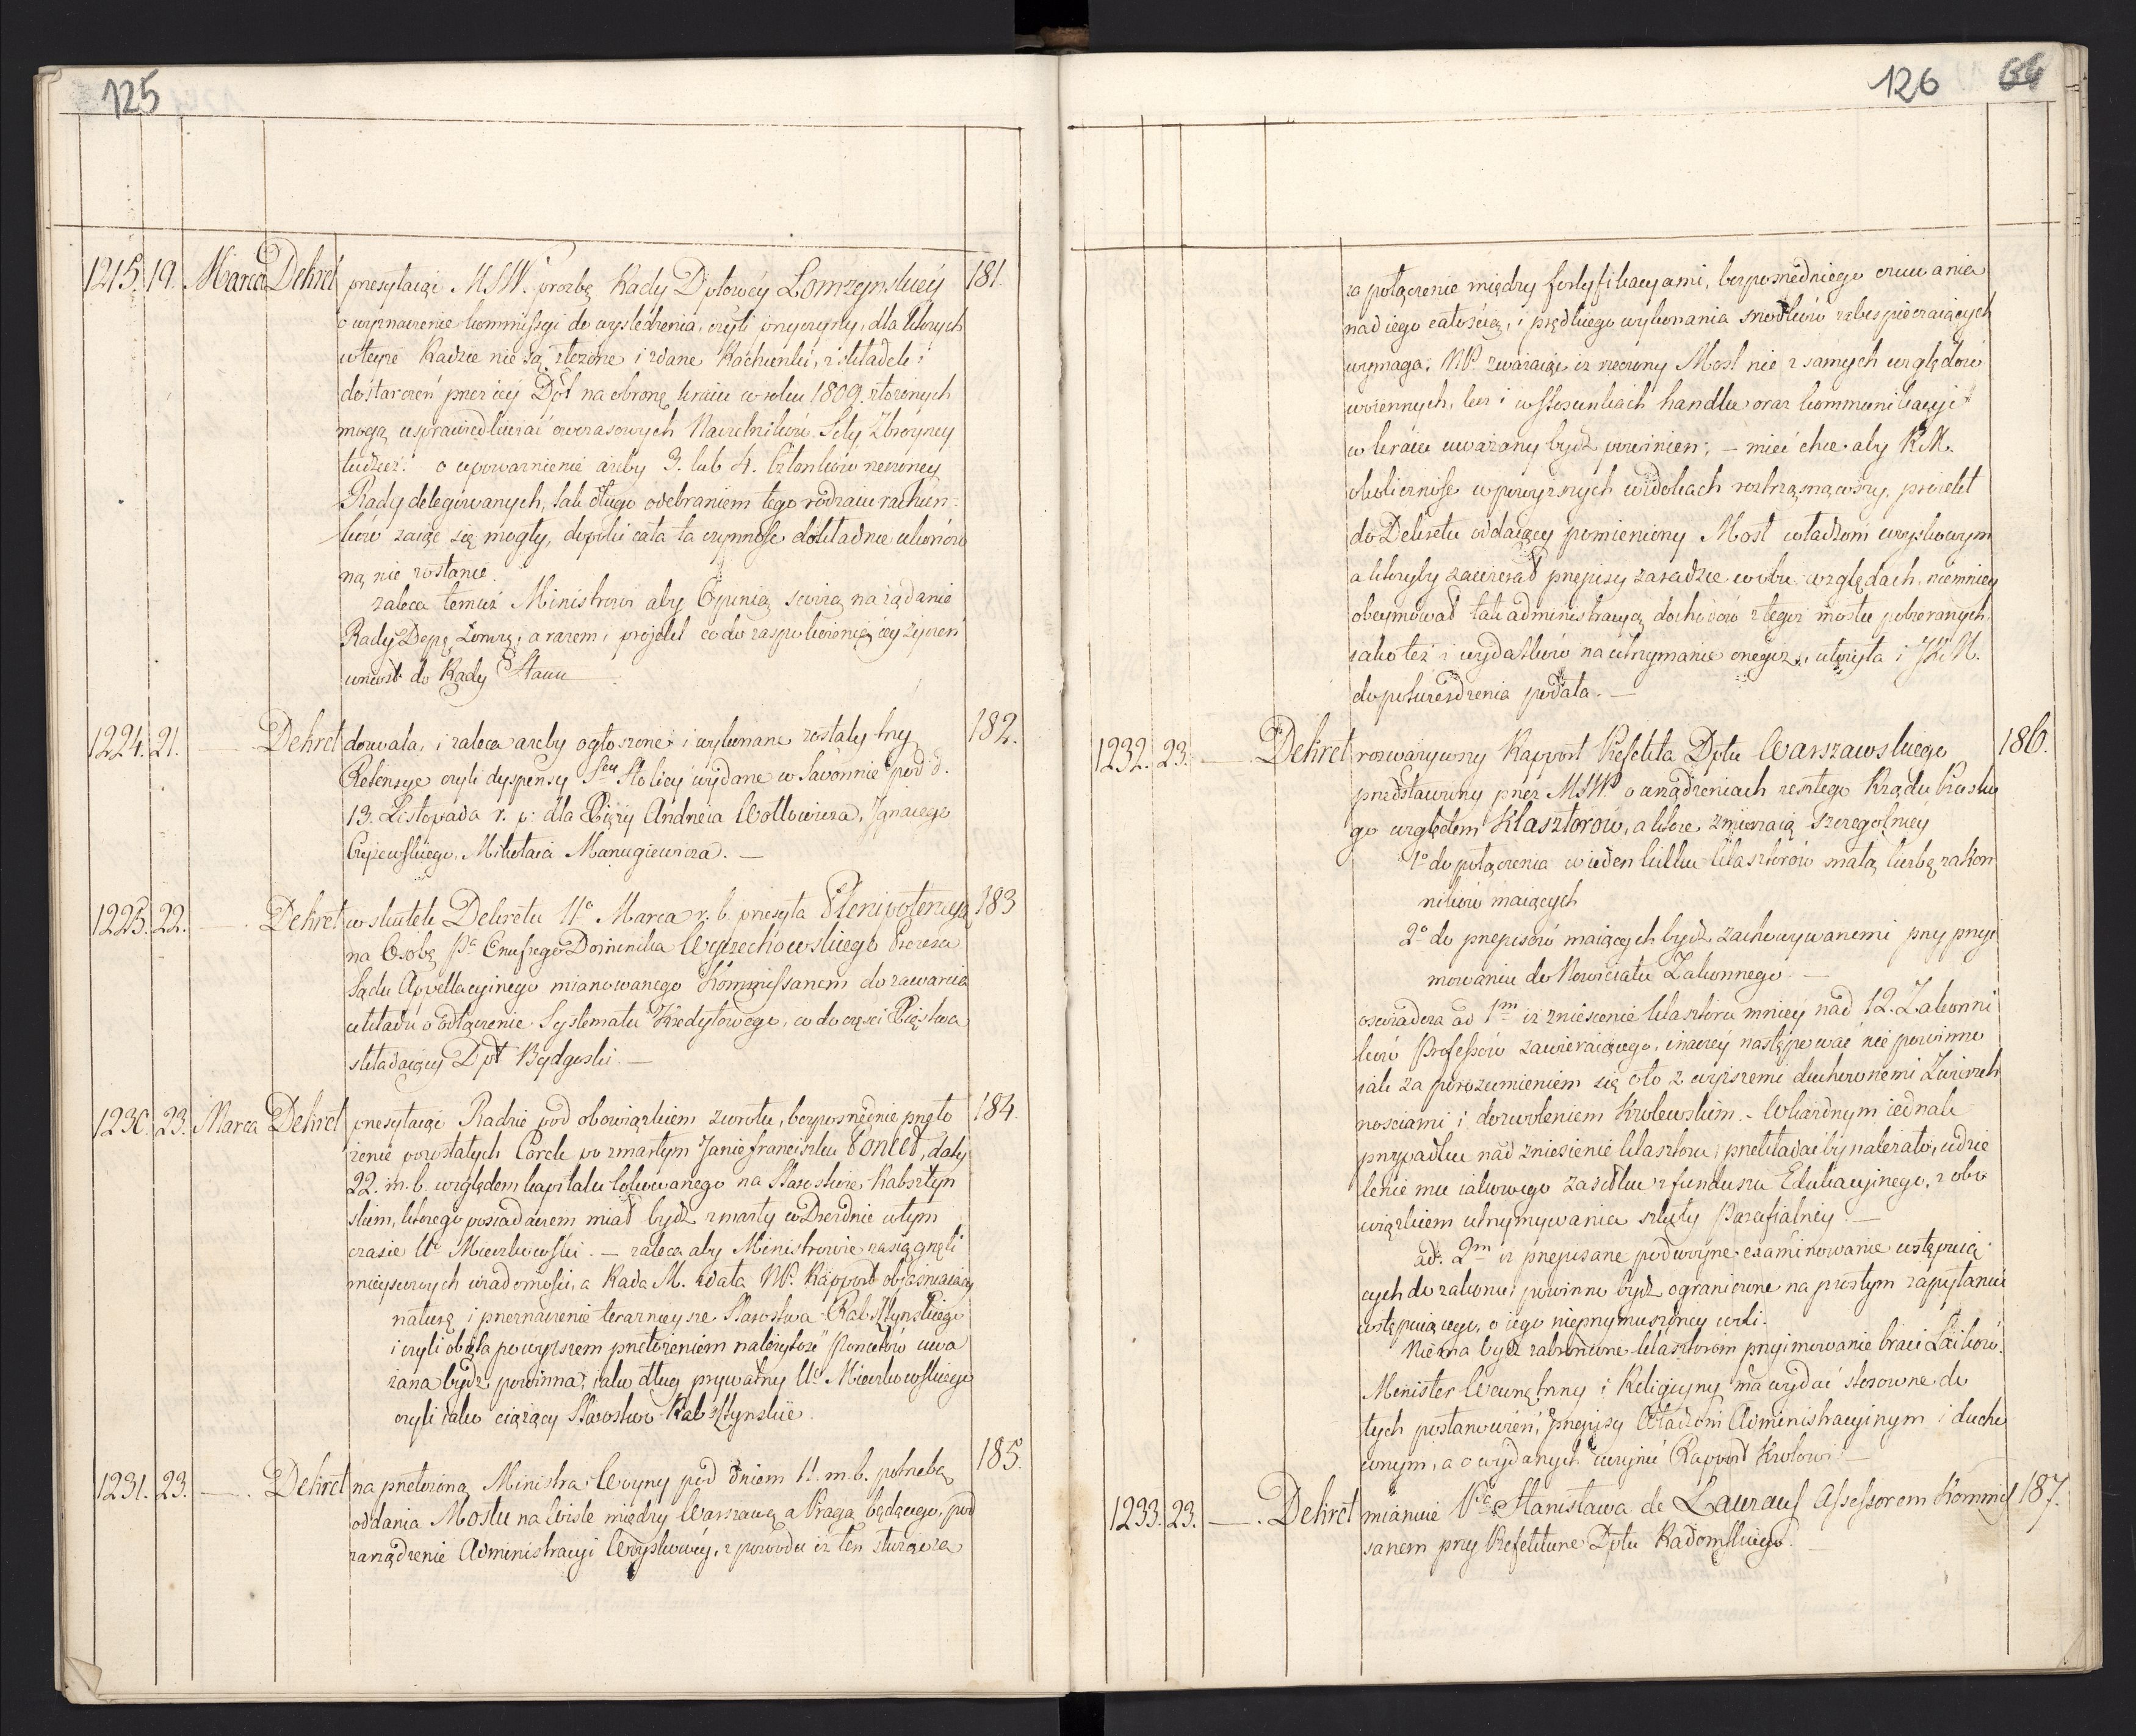 125
1215. 19. Marca Dekret przesyłaiąc MSW. prozbę Rady Dptowéy Łomzynskiéy 181.
o wyznaczenie kommissyi do wysledzenia, czyli przyczyny, dla których
w teyże Radzie nie są złożone i zdane Rachunki, z składek i
dostarczeń przez iéy Dpt na obronę kraiu w roku 1809. złożonych
mogą usprawiedliwiać owczasowych Naczelników Siły Zbroyney
tudzież: o upoważnienie ażeby 3. lub 4. Członków rzeczoney
Rady delegowanych, tak długo odebraniem tego rodzaiu rachun-
ków zaiąć się mogły, dopóki cała ta czynność dokładnie ukończo
ną nie zostanie.
zaleca temuż Ministrowi aby Opinią swoią na żądanie
Rady Depą Łomzą, a razem i projekt co do zaspokoienia iey życzeń
wniosł do Rady Stanu
1224. 21. — Dekret dozwala, i zaleca ażeby ogłoszone i wykonane zostały trzy 182.
Retenzye czyli dyspensy Stey Stolicy wydane w Savonnie pod d.
13. Listopada r. p: dla Xięży Andrzeia Wołłowicza, Ignacego
Czyżewskiego, Mikołaia Manugiewicza. —
1225. 22. — Dekret w skutek Dekretu 11o Marca r. b. przesyła Plenipotencyą 183
na Osobę Po Onufrego Dominika Wyczechowskiego Prezesa
Sądu Appellacyinego mianowanego Kommissarzem do zawarcia
układu o odłączenie Systematu Kredytowego, co do części Xięstwa
składaiącey Dpt Bydgoski. —
1230. 23. Marca Dekret przesyłaiąc Radzie pod obowiązkiem zwrotu, bezpośrednie przeło 184.
żenie pozostałych Córek po zmarłym Janie franciszku Poncet, daty
22. m. b. względem kapitału lokowanego na Starostwie Rabsztyn
skim, którego posiadaczem miał bydź zmarły w Dreźnie w tym
czasie Ur Mieczkowski. — zaleca aby Ministrowie zasiągnęli
mieyscowych wiadomości, a Rada M. zdała NP. Rapport obiaśniaiący
naturę i przeznaczenie terazniejsze Starostwa Rabsztynskiego
i czyli obięta powyższem przełożeniem należytość Poncetów uwa
żana bydź powinna, iako dług prywatny Uo Mieczkowskiego
czyli iako ciążący Starostwo Rabsztynskie.
1231. 23. — Dekret na przełożoną Ministra Woyny pod dniem 11. m. b. potrzebę 185.
oddania Mostu na Wisle między Warszawą a Pragą będącego, pod
zarządzenie Administracyi Woyskowéy, z powodu iż ten służąc za
126 66
za połączenie między fortyfikacyami, bezpośredniego czuwania
nad iego całością, i prędkiego wykonania srodków zabespieczaiących
wymaga; NP. zważaiąc iż rzeczony Most nie z samych względów
woiennych, lecz i w stosunkach handlu oraz kommunikacyi
w kraiu uważany bydź powinien; – mieć chce aby R.M.
okoliczność w powyższych widokach roztrząsnąwszy, proiekt
do Dekretu oddaiący pomieniony Most władzom woyskowym
a któryby zawierał przepisy zaradcze w obu względach, niemniey
obeymował tak administracyą dochodów z tegoż mostu pobieranych,
iako też i wydatków na utrzymanie onegoż, ułożyła i JKM.
do potwierdzenia podała. —
1232. 23. — Dekret rozważywszy Rapport Prefekta Dptu Warszawskiego 186.
przedstawiony przez MSW. o urządzeniach zeszłego Rządu Prusku
go względem Klasztorów, a które zmierzaią szczególniéy
1o do połączenia w ieden kilku klasztorów małą liczbę zakon
ników maiących
2o do przepisów maiących bydź zachowywanemi przy przyi
mowaniu do Nowiciatu Zakonnego. —
oswiadcza ad 1m iż zniesienie klasztoru mniéy nad 12. Zakonni
ków Professów zawieraiącego, inaczéy następować nie powinno
iak za porozumieniem się oto z wyższemi duchownemi Zwierzch
nosciami, i dozwoleniem Krolewskim. – W każdnym iednak
przypadku nad zniesienie klasztoru, przekładaćby należało, udzie
lenie mu iakowego zasiłku z funduszu Edukacyinego, z obo
wiązkiem utrzymywania szkoły Parafialney. —
ad. 2m iż przepisane podwóyne examinowanie wstępuią
cych do zakonu, powinno bydź ograniczone na prostym zapytaniu
wstępuiącego, o iego nieprzymuszoney woli.
Nie ma bydź zabronione klasztorom przyimowanie braci Laików.
Minister Wewnętrzny i Religiyny ma wydać stosowne do
tych postanowień, przepisy Władzom Administracyinym i ducho
wnym, a o wydanych uczynić Rapport Krolowi —
1233. 23. — Dekret mianuie Po Stanisława de Lauraus Assessorem Kommis 187.
sarzem przy Prefekturze Dptu Radomskiego.